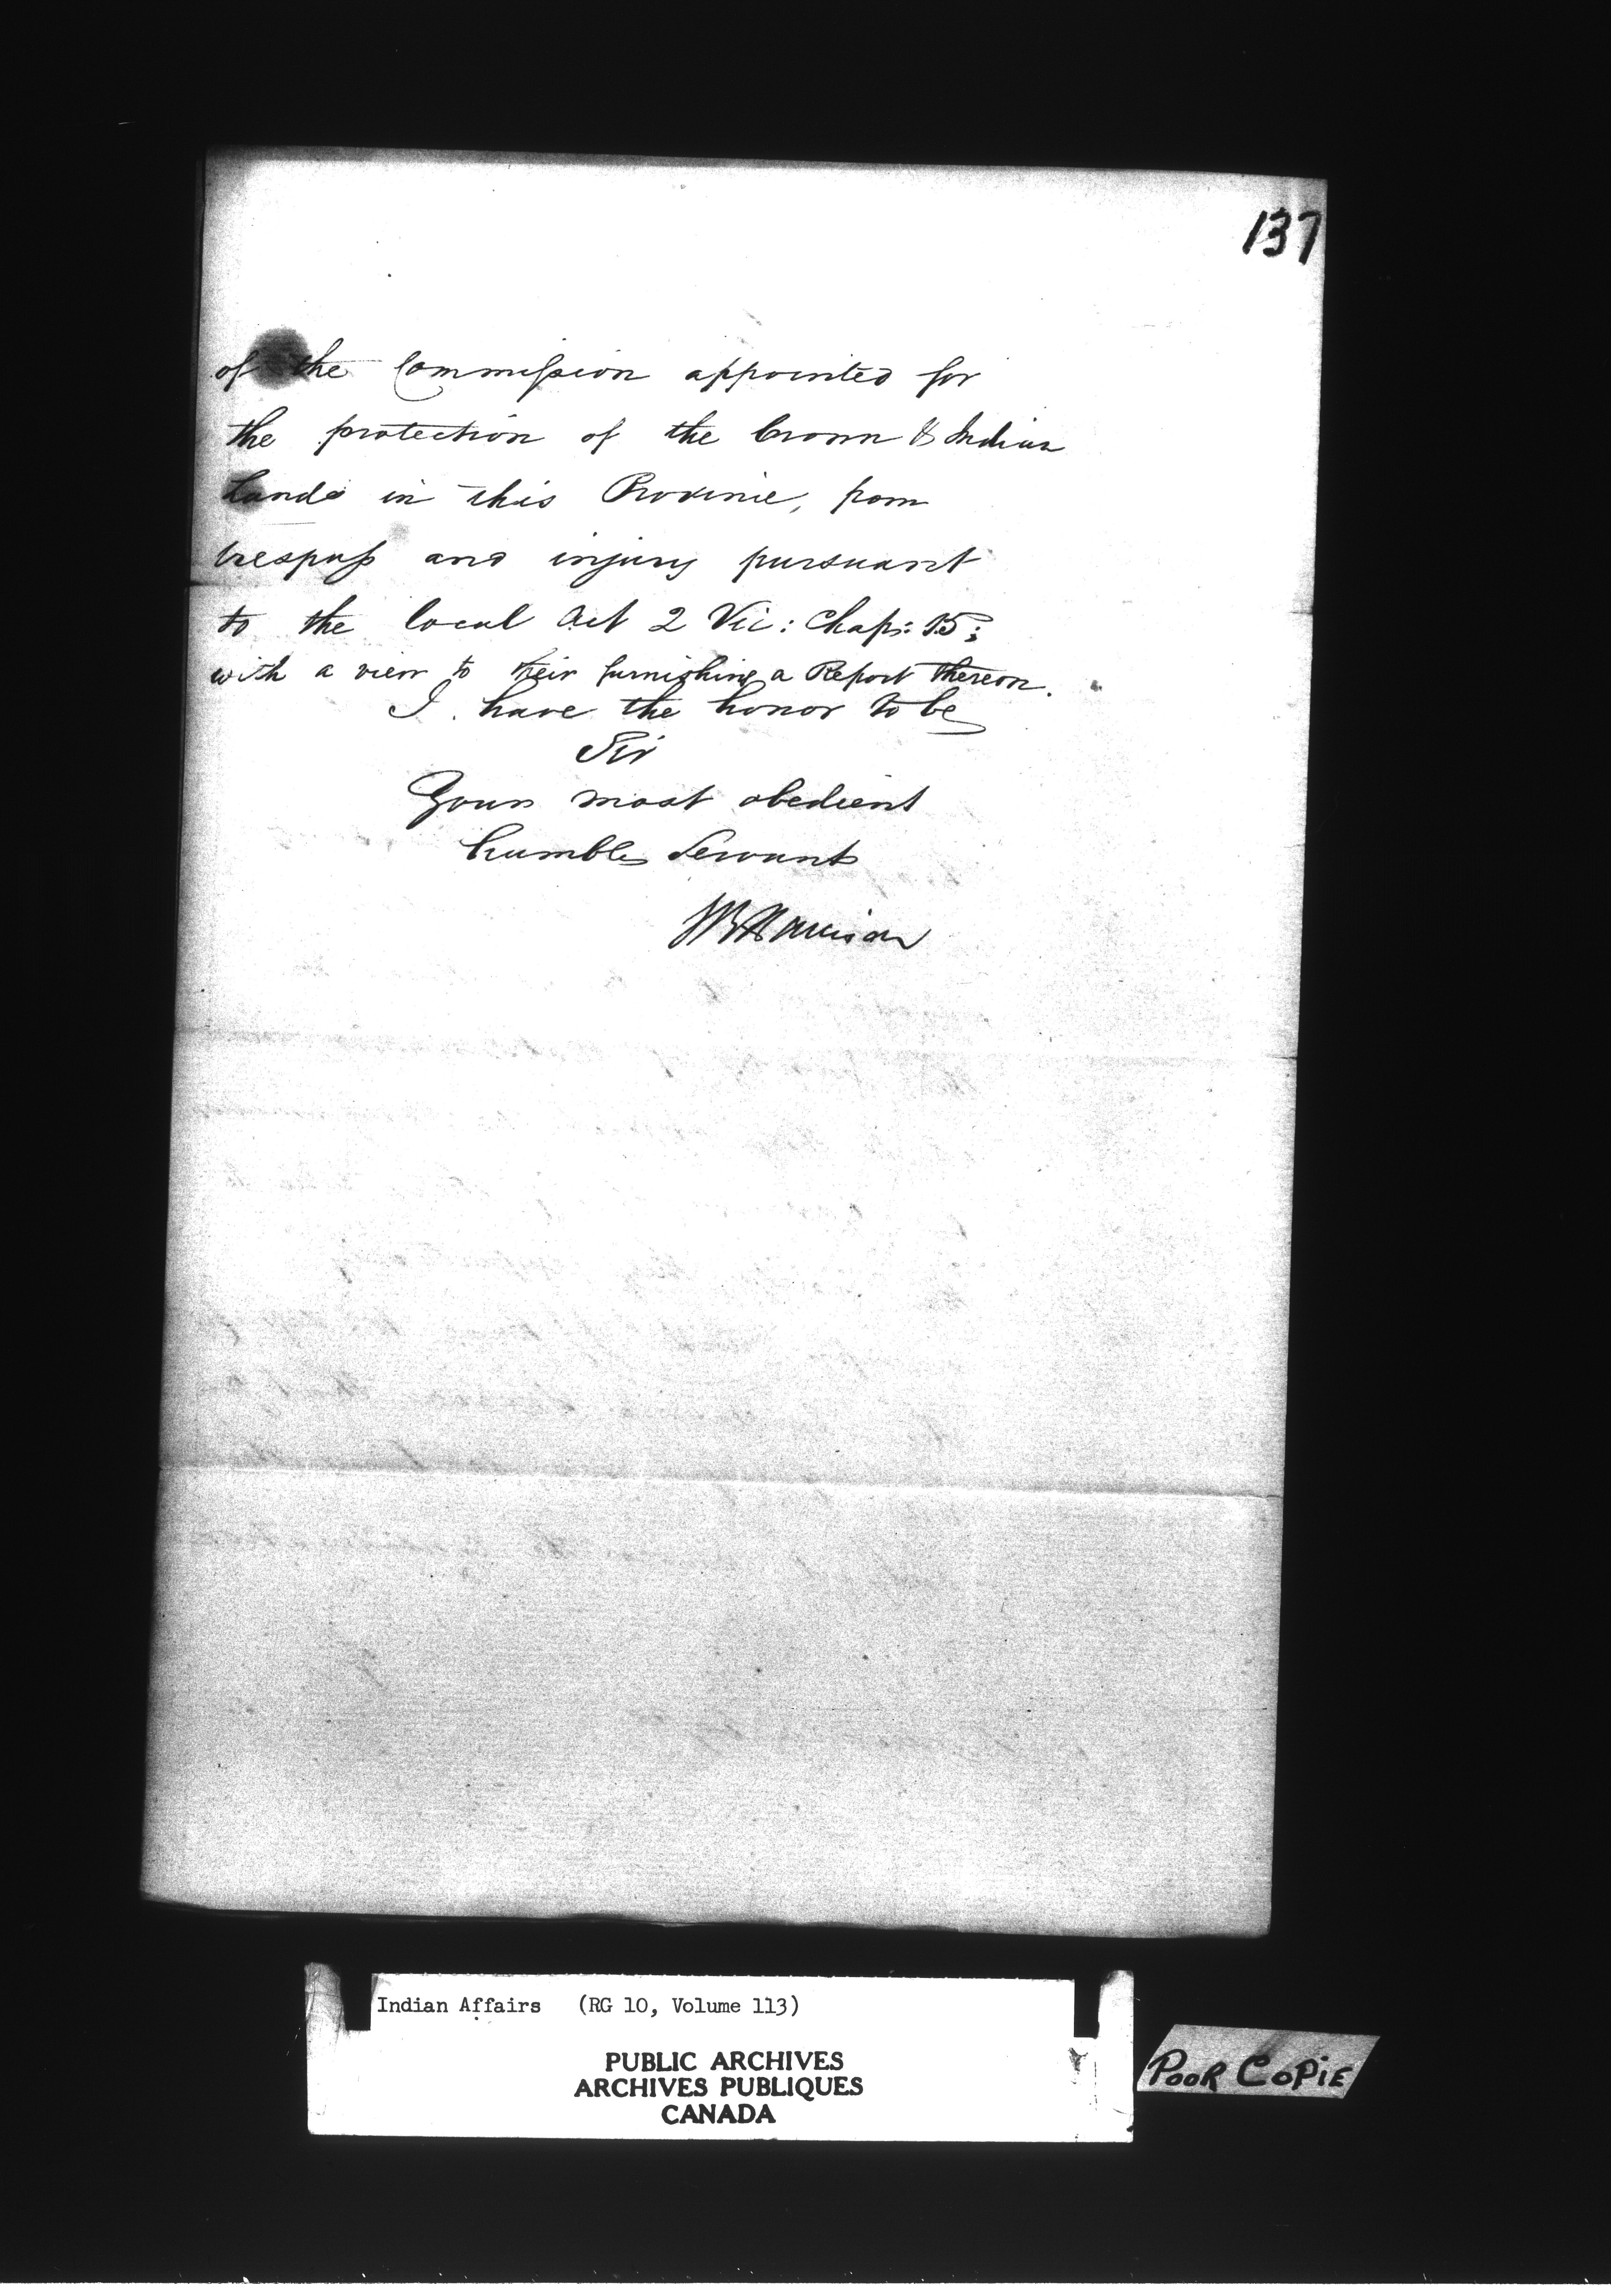 137
of the Commission appointed for
the protection of the Crown & Indian
Lands in this Province, from
trespass and injury pursuant
to the local Act 2 Vic: Chap: 15;
with a view to their furnishing a Report thereon.
I have the honor to be
Sir
Your most obedient
humble Servant
SBHarrison
Indian Affairs (RG 10, Volume 113)
PUBLIC ARCHIVES
ARCHIVES PUBLIQUES
CANADA
POOR COPIE